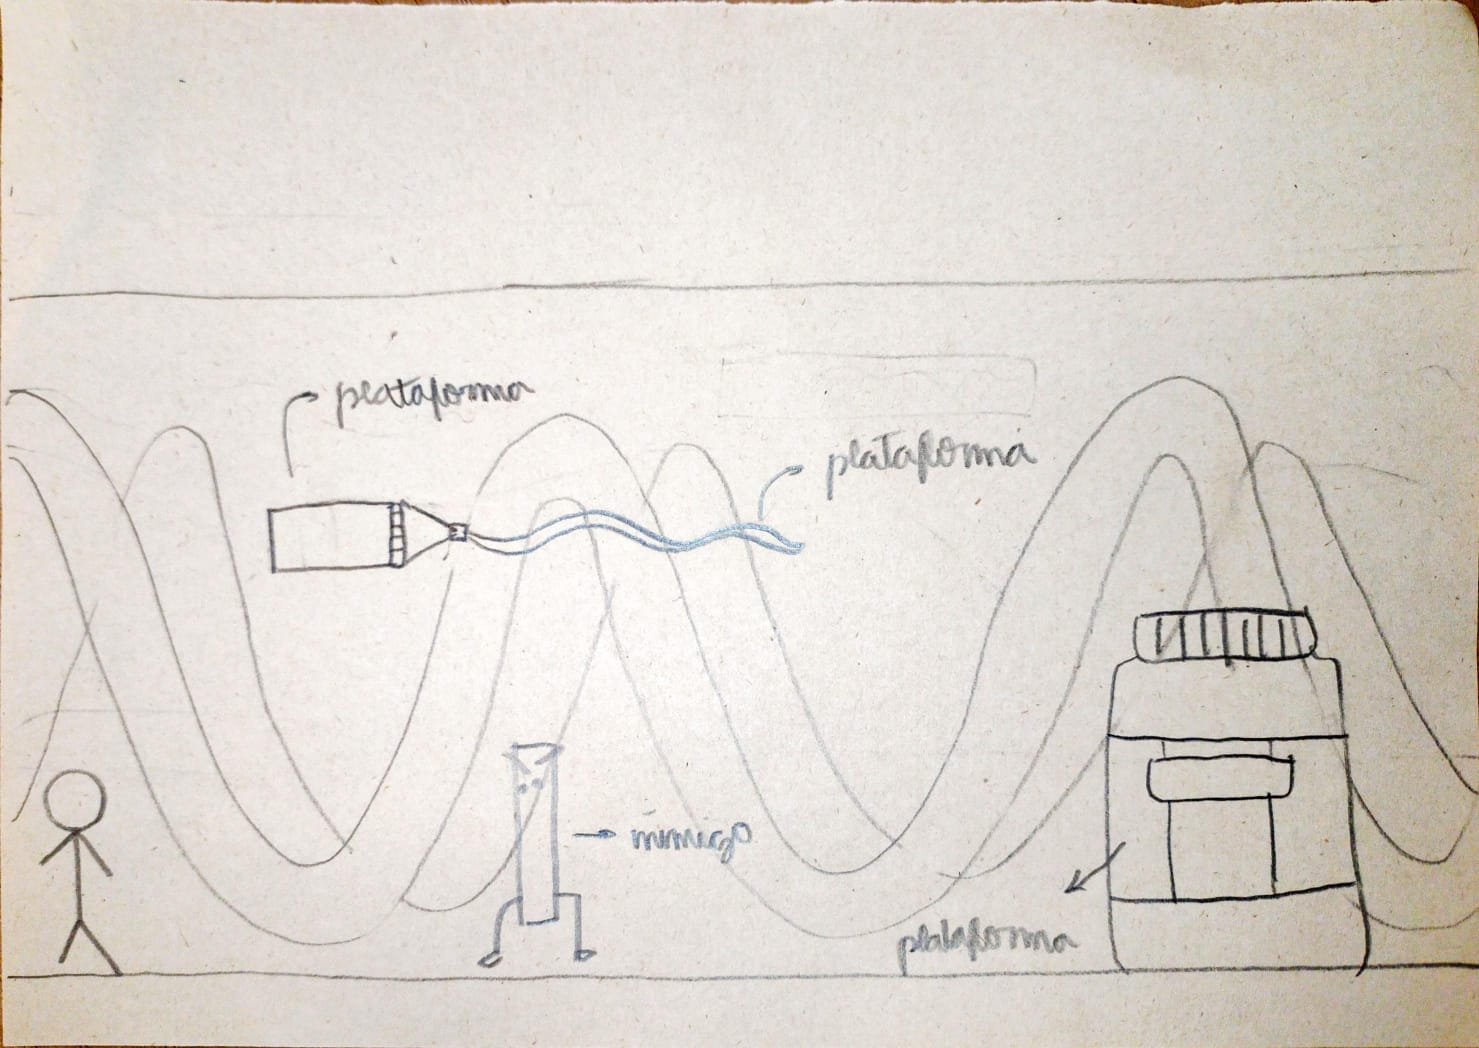 plataforma
plataforma
inimigo
plataforma